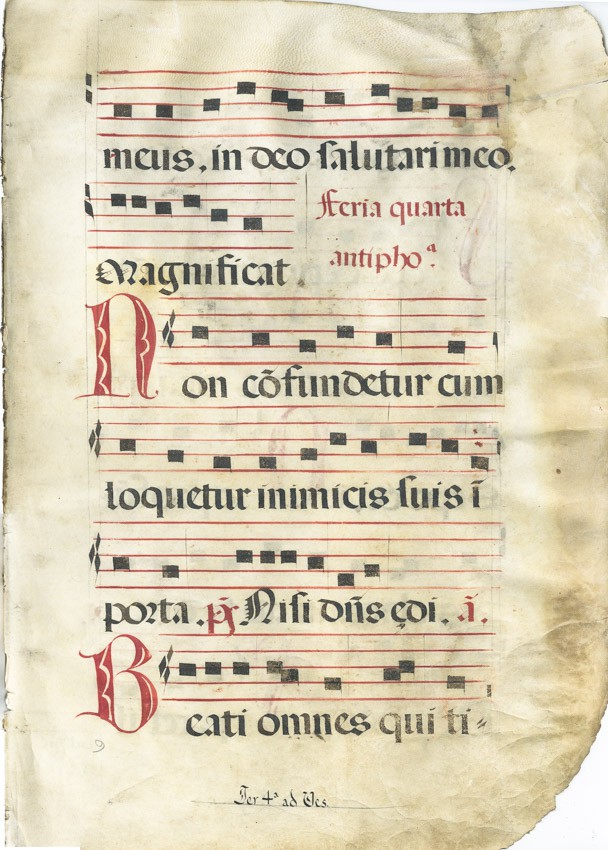 meus, in deo salutari meo.
Magnificat
Feria quarta
antipho.ª
Non cōfundetur cum
loquetur inimicis suis ī
porta. p̄s̄ Nisi dn̄s ędi. ā.
Beati omnes qui ti-
9
Fer 4ª ad Ves.